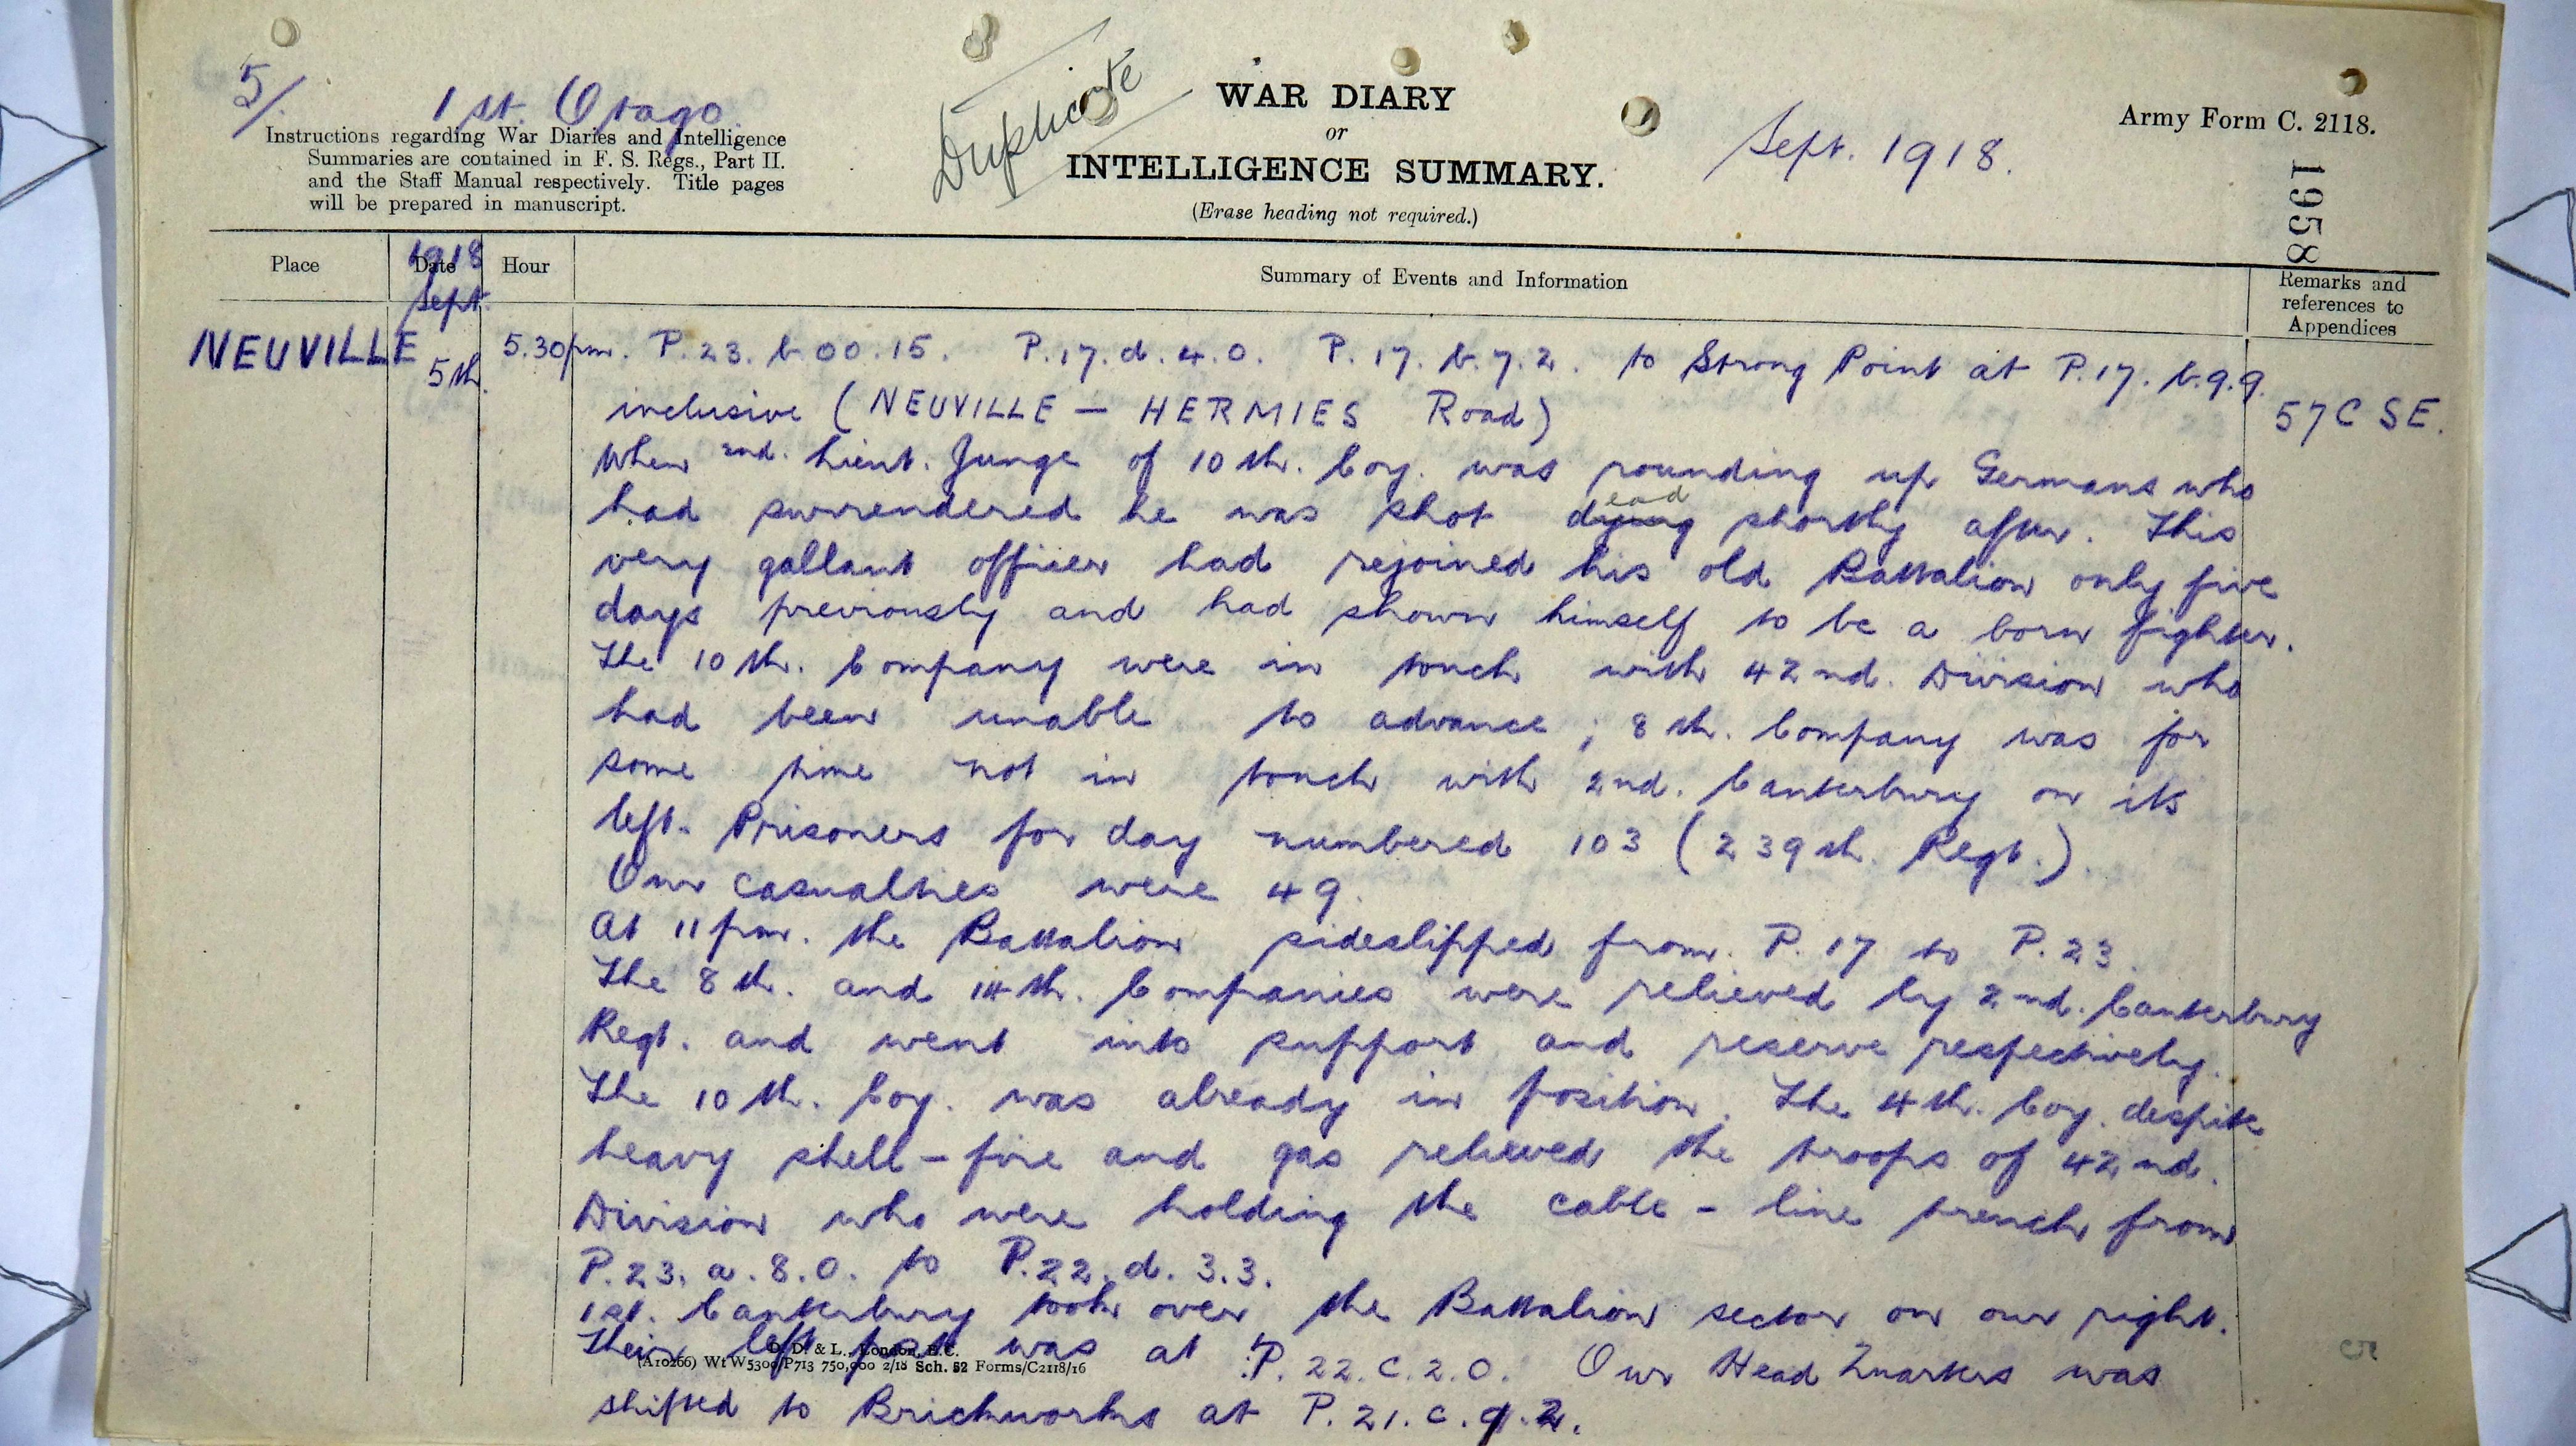 5/.
1st. Otago.
Duplicate
WAR DIARY
or
INTELLIGENCE SUMMARY.
(Erase heading not required.)
Sept. 1918.
Army Form C. 2118.
1958
Instructions regarding War Diaries and Intelligence
Summaries are contained in F. S. Regs., Part II.
and the Staff Manual respectively. Title pages
will be prepared in manuscript.
Place
Date
1918
Sept.
Hour
Summary of Events and Information
Remarks and
references to
Appendices
NEUVILLE 5th. 5.30pm. P.23.b.00.15. P.17.d.4.0. P.17.b.7.2. to Strong Point at P.17.b.9.9.
inclusive (NEUVILLE — HERMIES Road) 57C SE.
When 2nd. Lieut. Junge of 10th. Coy. was rounding up Germans who
had surrendered he was shot dead shortly after. This
very gallant officer had rejoined his old Battalion only five
days previously and had shown himself to be a born fighter.
The 10th. Company were in touch with 42nd. Division who
had been unable to advance; 8th. Company was for
some time not in touch with 2nd. Canterbury on its
left. Prisoners for day numbered 103 (239th. Regt.).
Our casualties were 49.
At 11pm. the Battalion sideslipped from P.17 to P.23.
The 8th. and 14th. Companies were relieved by 2nd. Canterbury
Regt. and went into support and reserve respectively.
The 10th. Coy. was already in position. The 4th. Coy. despite
heavy shell-fire and gas relieved the troops of 42nd.
Division who were holding the cable-line trench from
P.23.a.8.0. to P.22.d.3.3.
1st. Canterbury took over the Battalion sector on our right.
Their left post was at P.22.C.2.0. Our Head Quarters was
shifted to Brickworks at P.21.c.9.2.
D. D. & L., London, E.C.
(A10266) Wt W5300/P713 750,000 2/18 Sch. 52 Forms/C2118/16